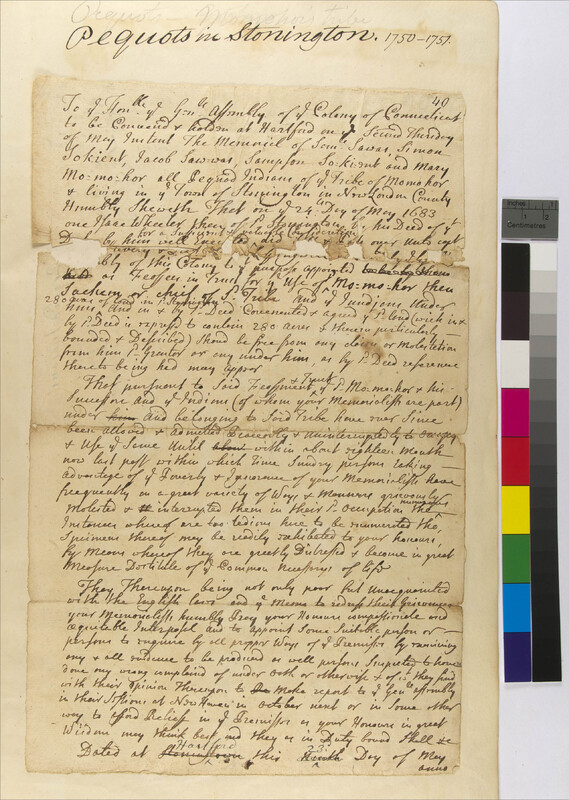 Pequots in Stonington. 1750-1751.
40
To ye Honble ye Genll Assembly of ye Colony of Connecticut
to be Convend & holden at Hartford on ye Second Thursday
of May Instant The Memorial of Saml Sawas, Simon
Sokient, Jacob Sawwas, Sampson Sokient and Mary
Mo-mo-hor all Pequod Indians of ye Tribe of Momohor
& living in ye Town of Stonington in New London County
Humbly Sheweth That on ye 24 Day of May 1683
one Isaac Wheeler then of Sd Stonington by his Deed of yt
for a Sufficient & valuable
D by him well Executed did over unto
bly of this Colony to ye purpose appointed
as Feoffees in Trust for ye Use of Mo-mo-hor then
Sachem or Chief of Sd Tribe and ye Indians Under
280 acres of land in Sd Stonington
him, And in & by Sd Deed Covenanted & agreed yt Sd land (wich in &
by Sd Deed is exprest to contain 280 acres & therein particularly
bounded & Described) Should be free from any claim or molestation
from him Sd Grantor or any under him, as by Sd Deed reference
thereto being had may appear
That pursuant to Said Feoffment & Trust ye Sd Mo-mo-hor & his
Successors And ye Indians (of whom your Memorialists are part)
under him And belonging to Said Tribe have ever Since
been allowed & admitted Peaceably & Uninterruptedly to Occupy
& Use ye Same Until about within about eighteen Month
now last past within which Time Sundry persons taking
advantage of ye Poverty & Ignorance of your Memorialists have
frequently in a great variety of Ways & Manners grievously
Molested & interrupted them in their Sd Occupation The numerous
Instances whereof are too tedious here to be enumerated tho
Specimens thereof may be readily exhibited to your honours,
by Means whereof they are greatly Distressed & become in great
Measure Destitute of ye Common Necessarys of life
They Thereupon being not only poor but Unacquainted
with the English laws and ye Means to redress their Grievances
your Memorialists humbly Pray your Honours compassionate and
equitable Interposal and to appoint Some Suitable person or
persons to enquire by all proper Ways of ye Premisses by examining
any & all evidence to be produced as well persons Suspected to have
done any wrong complained of under Oath or otherwise & of wt they find
with their Opinion Thereupon to make report to ye Genll Assembly
in their Sessions at New Haven in October next or in Some other
way to afford Relief in ye Premisses as your Honours in great
Wisdom may think best and they as in Duty bound Shall &c
Hartford 23
Dated at Stonington this Day of May
anno